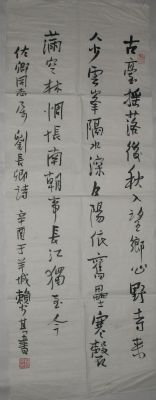 古臺搖落後秋入望鄉心野寺來
人少雲峯隔水深夕陽依舊壘寒磬
滿空林惆悵南朝事長江獨至今
佐卿同志屬 劉長卿詩 辛酉于羊城賴少其書